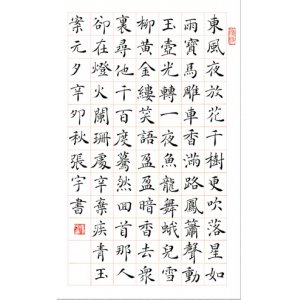 東風夜放花千樹更吹落星如
雨寶馬雕車香滿路鳳簫聲動
玉壺光轉一夜魚龍舞蛾兒雪
柳黃金縷笑語盈盈暗香去衆
裏尋他千百度驀然回首那人
卻在燈火闌珊處辛棄疾青玉
案元夕辛卯秋張宇書